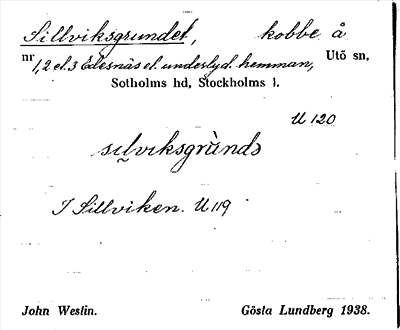 Sillviksgrundet, kobbe å
nr 1, 2 el. 3 Edesnäs el. underlyd. hemman, Utö sn,
Sotholms hd, Stockholms l.
U 120
sɩlviksgrùndə
I Sillviken. U 119
John Westin. Gösta Lundberg 1938.